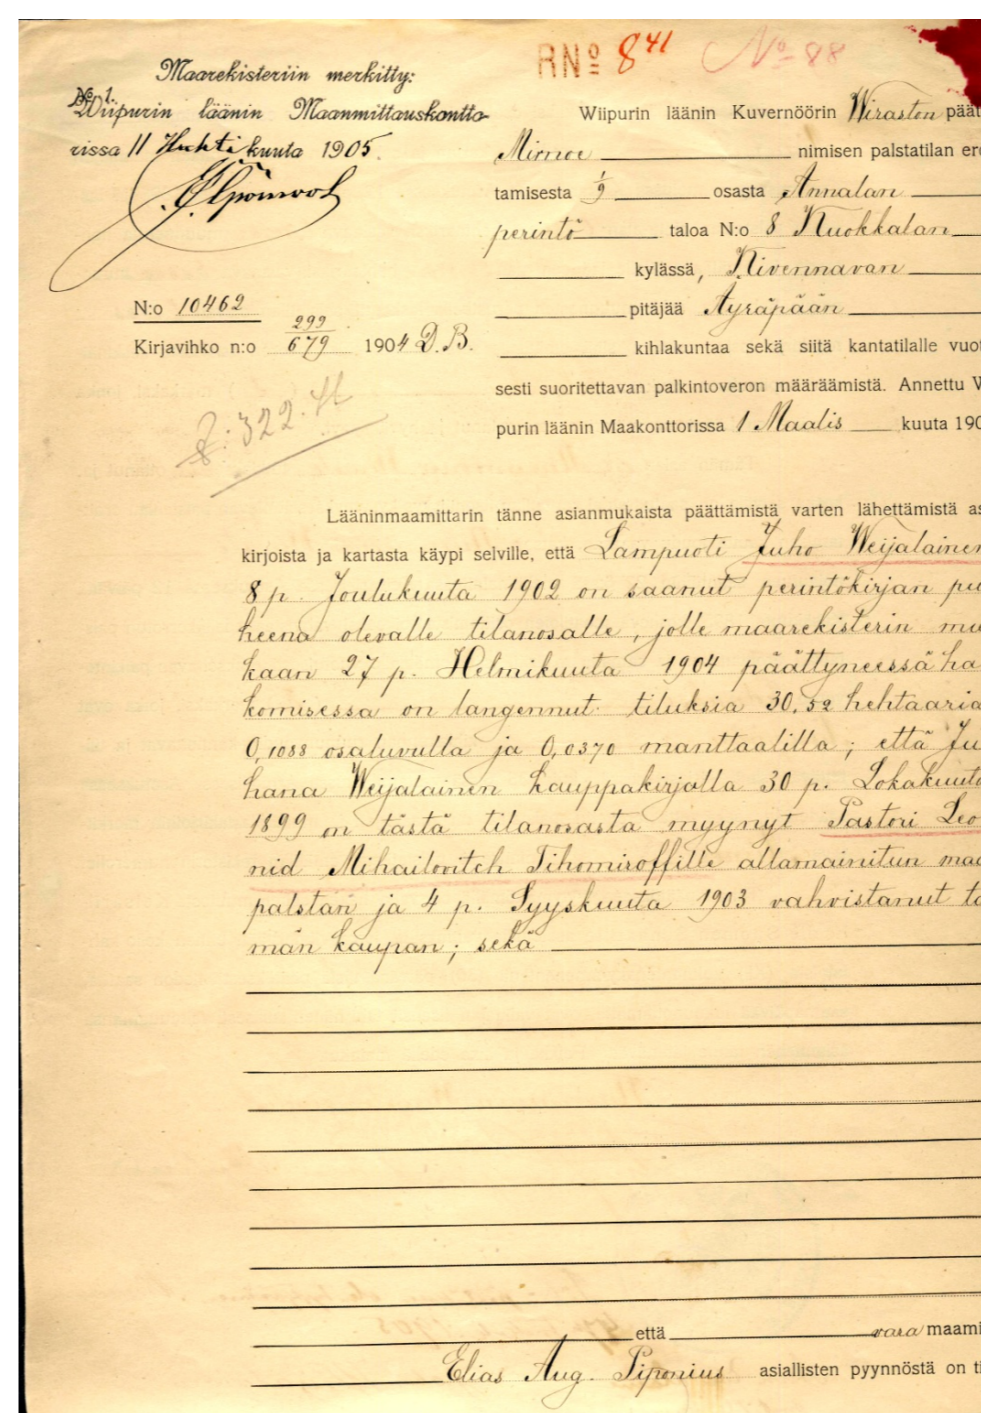 RNº 8⁴¹ Nº 88
Maarekisteriin merkitty:
Nº 1.
Wiipurin läänin Maanmittauskontto-
rissa 11 Huhti kuuta 1905.
N:o 10462
Kirjavihko n:o 299/679 1904 D.B.
322.
Wiipurin läänin Kuvernöörin Wiraston päät
Mirnoe nimisen palstatilan ero
tamisesta 1/9 osasta Annalan
perintö taloa N:o 8 Kuokkalan
kylässä, Kivennavan
pitäjää Äyräpään
kihlakuntaa sekä siitä kantatilalle vuot
sesti suoritettavan palkintoveron määräämistä. Annettu V
purin läänin Maakonttorissa 1 Maalis kuuta 190
Lääninmaamittarin tänne asianmukaista päättämistä varten lähettämistä as
kirjoista ja kartasta käypi selville, että Lampuoti Juho Weijalainen
8 p. Joulukuuta 1902 on saanut perintökirjan pu
heena olevalle tilanosalle, jolle maarekisterin mu
kaan 27 p. Helmikuuta 1904 päättyneessä ha
komisessa on langennut tiluksia 30,52 hehtaaria
0,1088 osaluvulla ja 0,0370 manttaalilla; että Ju
hana Weijalainen kauppakirjalla 30 p. Lokakuuta
1899 on tästä tilanosasta myynyt Pastori Leo
nid Mihailovitch Tihomiroffille allamainitun maa
palstan ja 4 p. Syyskuuta 1903 vahvistanut tä
män kaupan; sekä
että vara maami
Elias Aug. Piponius asiallisten pyynnöstä on ti